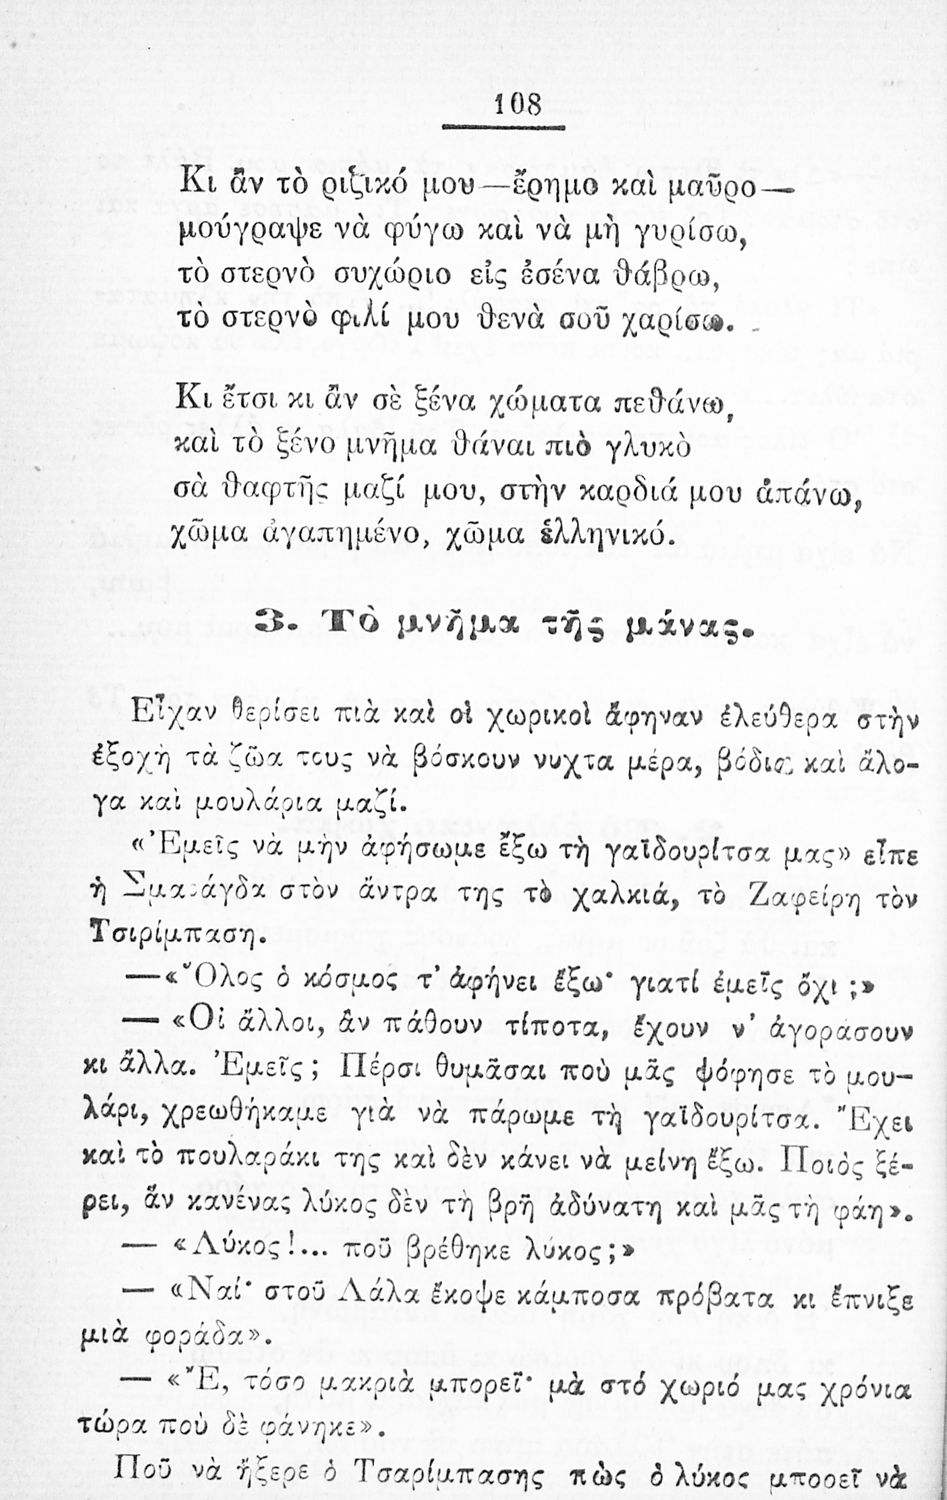 108
Κι ἂν τὸ ριζικό μου—ἔρημο καὶ μαῦρο—
μούγραψε νὰ φύγω καὶ νὰ μὴ γυρίσω,
τὸ στερνὸ συχώριο εἰς ἐσένα θάβρω,
τὸ στερνὸ φιλί μου θενὰ σοῦ χαρίσω.
Κι ἔτσι κι ἂν σὲ ξένα χώματα πεθάνω,
καὶ τὸ ξένο μνῆμα θάναι πιὸ γλυκὸ
σὰ θαφτῆς μαζί μου, στὴν καρδιά μου ἀπάνω,
χῶμα ἀγαπημένο, χῶμα ἑλληνικό.
3. Τὸ μνῆμα τῆς μάνας.
Εἶχαν θερίσει πιὰ καὶ οἱ χωρικοὶ ἄφηναν ἐλεύθερα στὴν
ἐξοχὴ τὰ ζῶα τους νὰ βόσκουν νυχτα μέρα, βόδια καὶ ἄλο-
γα καὶ μουλάρια μαζί.
«Ἐμεῖς νὰ μὴν ἀφήσωμε ἔξω τὴ γαϊδουρίτσα μας» εἶπε
ἡ Σμαράγδα στὸν ἄντρα της τὸ χαλκιά, τὸ Ζαφείρη τὸν
Τσιρίμπαση.
—«Ὅλος ὁ κόσμος τ’ ἀφήνει ἔξω· γιατί ἐμεῖς ὄχι ;»
— «Οἱ ἄλλοι, ἂν πάθουν τίποτα, ἔχουν ν’ ἀγοράσουν
κι ἄλλα. Ἐμεῖς ; Πέρσι θυμᾶσαι ποὺ μᾶς ψόφησε τὸ μου-
λάρι, χρεωθήκαμε γιὰ νὰ πάρωμε τὴ γαϊδουρίτσα. Ἔχει
καὶ τὸ πουλαράκι της καὶ δὲν κάνει νὰ μείνη ἔξω. Ποιὸς ξέ-
ρει, ἂν κανένας λύκος δὲν τὴ βρῆ ἀδύνατη καὶ μᾶς τὴ φάη».
— «Λύκος!... ποῦ βρέθηκε λύκος ;»
— «Ναί· στοῦ Λάλα ἔκοψε κάμποσα πρόβατα κι ἔπνιξε
μιὰ φοράδα».
— «Ἔ, τόσο μακριὰ μπορεῖ· μὰ στό χωριό μας χρόνια
τώρα ποὺ δὲ φάνηκε».
Ποῦ νὰ ἤξερε ὁ Τσαρίμπασης πὼς ὁ λύκος μπορεῖ νὰ